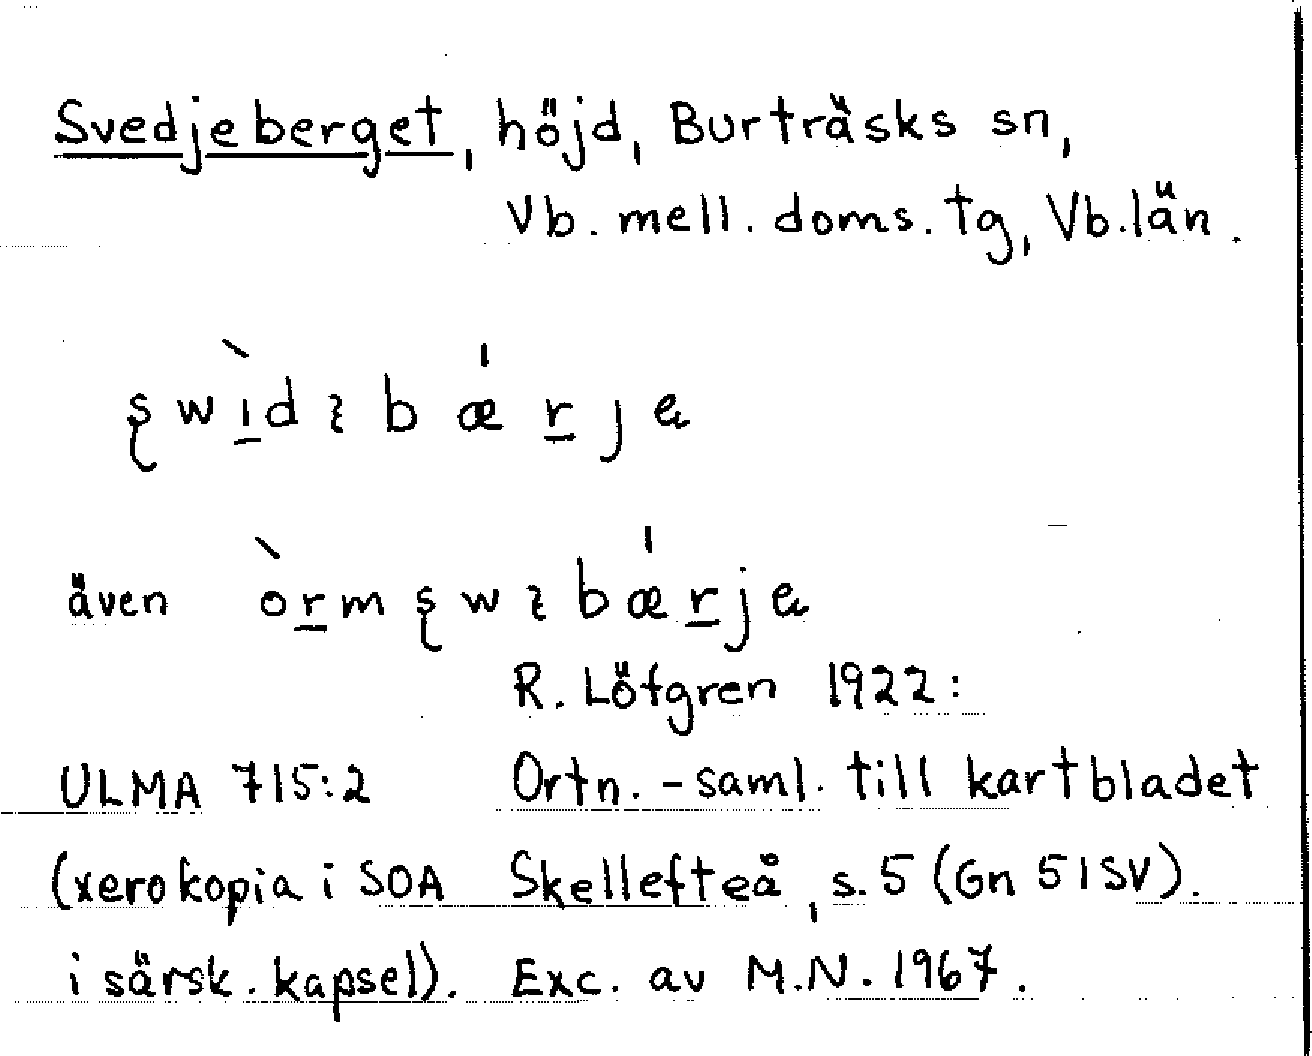 Svedjeberget, höjd, Burträsks sn,
Vb. mell. doms. tg, Vb. län.
även
R. Löfgren 1922:
ULMA 715:2 Ortn.-saml. till kartbladet
(xerokopia i SOA Skellefteå, s. 5 (Gn 51SV).
i särsk. kapsel). Exc. av M.N. 1967.